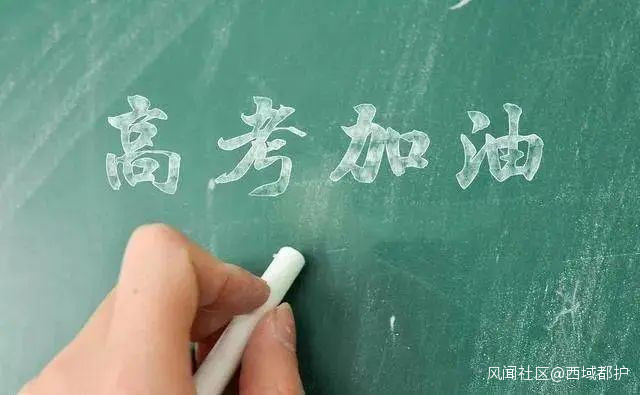 高考加油
风闻社区@西域都护